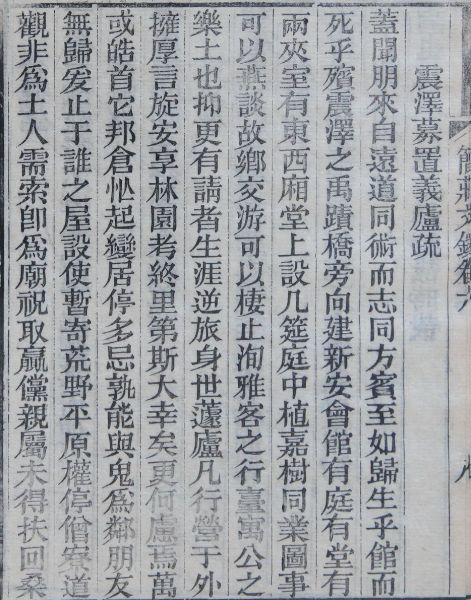 簡莊文鈔卷六
震澤募置義廬疏
蓋聞朋來自遠道同術而志同方賓至如歸生乎館而
死乎殯震澤之禹蹟橋旁向建新安會館有庭有堂有
兩夾室有東西廂堂上設几筵庭中植嘉樹同業圖事
可以燕談故鄉交游可以棲止洵雅客之行臺寓公之
樂土也抑更有請者生涯逆旅身世蘧廬凡行營于外
擁厚言旋安享林園考終里第斯大幸矣更何慮焉萬
或皓首它邦倉忪起變居停多忌孰能與鬼爲鄰朋友
無歸爰止于誰之屋設使暫寄荒野平原權停僧寮道
觀非爲土人需索卽爲廟祝取贏儻親屬未得扶回桑